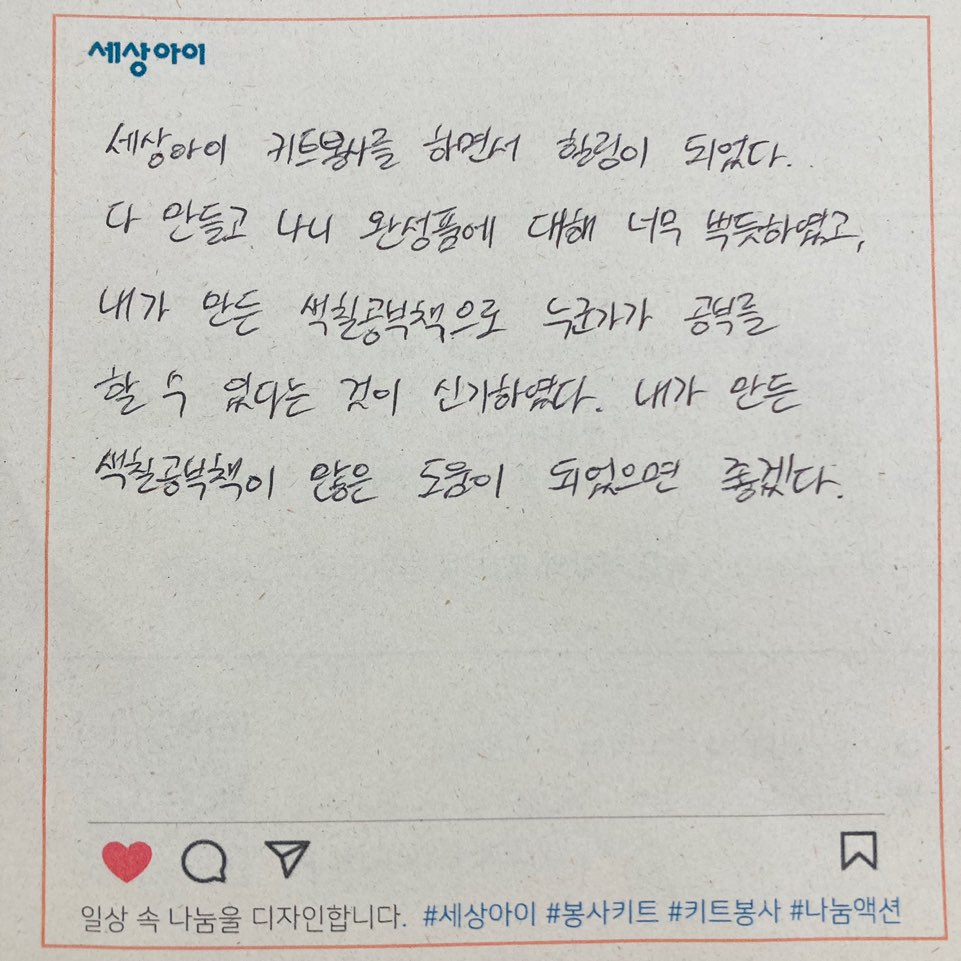 세상아이
세상아이 키트봉사를 하면서 힐링이 되었다.
다 만들고 나니 완성품에 대해 너무 뿍듯하였고,
내가 만든 색칠공부책으로 누군가가 공부를
할 수 있다는 것이 신기하였다. 내가 만든
색칠공부책이 많은 도움이 되었으면 좋겠다.
일상 속 나눔을 디자인합니다. #세상아이 #봉사키트 #키트봉사 #나눔액션